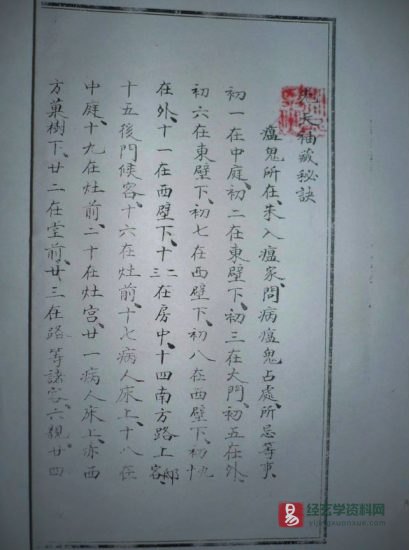 天福藏秘訣
瘟鬼所在、未入瘟家、問病瘟鬼占處、所忌等事、
初一在中庭、初二在東壁下、初三在大門、初五在外、
初六在東壁下、初七在西壁下、初八在西壁下、初九
在外、十一在西壁下、十二三在房中、十四南方路上客、
十五後門候客、十六在灶前、十七病人床上、十八在
中庭、十九在灶前、二十在灶宮、廿一病人床上、亦西
方菓樹下、廿二在堂前、廿三在路等諸客、六親、廿四
易
经艺学资料网